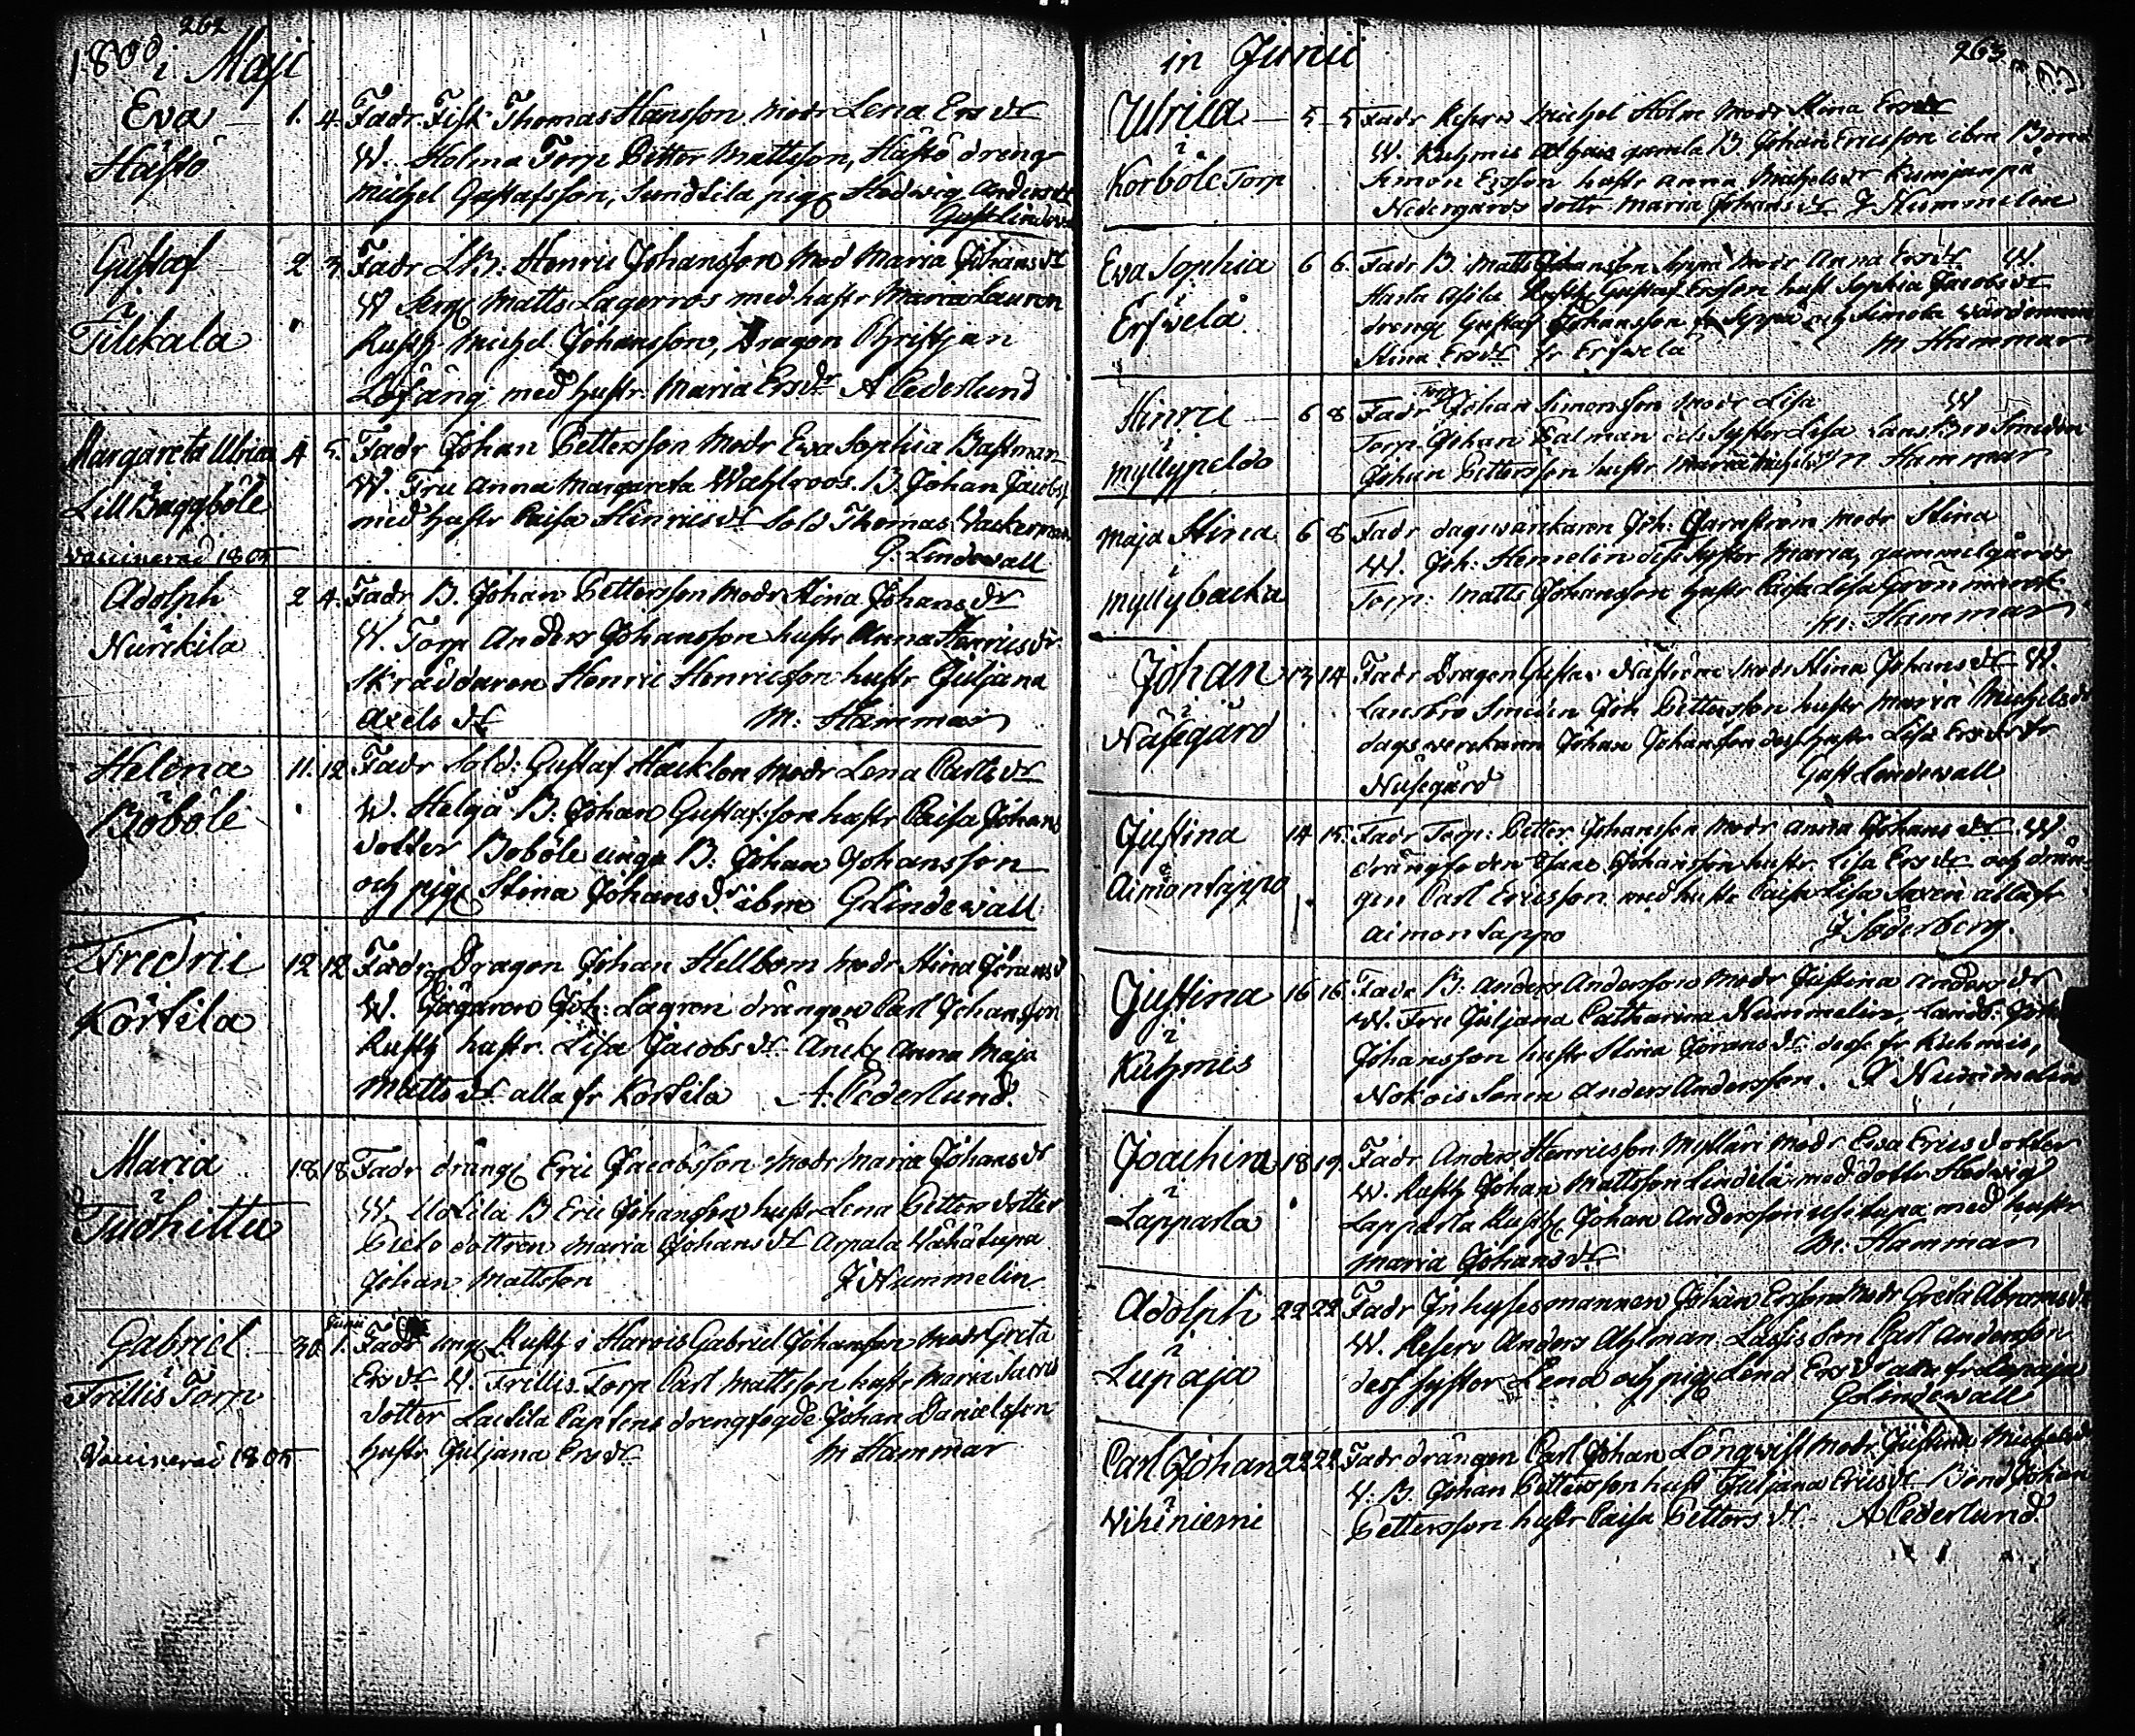 262
1800 i Maji
Eva
Håstö
1. 4. Fadr. Fisk. Thomas Hansson Modr Lena Ersdr
W. Kolma Torp Petter Mattsson, Håstö dreng
Michel Gustafsson, Sundsila pig Hedwig Andersdr
Gust Lindew.
Gustaf
i
Tilikala
2 3. Fadr LB: Henric Johansson Mod Maria Johansdr
W Serg Matts Lagerros med hustr Maria Lauren
Rusth Michel Johansson, Dragon Christjan
Löfäng med hustr. Maria Ersdr A Cederlund
Margareta Ulrica
i
Lill Baggböle
Vaccinerad 1805
4 5. Fadr Johan Pettersson Modr Eva Sophia Bastman
W. Fru Anna Margareta Wahlroos. B. Johan Jacobs.
med hustr Caisa Hinricsdr Sold Thomas Wackerman
G. Lindewall
Adolph
i
Nurckila
2 4. Fadr B. Johan Pettersson Modr Stina Johansdr
W. Torp Anders Johansson hustr Anna Henricsdr
Skräddaren Henric Henricsson hustr Juljana
Axelsdr M. Hammar
Helena
i
Böböle
11. 12 Fadr Sold: Gustaf Hacklon Modr Lena Carlsdr
W. Helgå B: Johan Gustafsson hustr Caisa Johans
dotter Böböle unga B: Johan Johansson
och pig Stina Johansdr ibm G Lindewall
Fredric
i
Körkila
12 12 Fadr Dragon Johan Hellbom Modr Stina Göransd
W. Jägaren Joh: Lagren drängen Carl Johansson
Rusth hustr. Lisa Jacobsdr. Änk Anna Maja
Mattsdr alla fr Korkila A. Cederlund.
Maria
i
Tuohittu
18 18 Fadr dräng Eric Jacobsson Modr Maria Johansdr
W. B Eric Johansson hustr Lena Petters dotter
dottren Maria Johansdr Arpala Wähätupa
Johan Mattsson J Nummelin
Gabriel
Frillis Torp
Vaccinerad 1805
Junii
30 1. Fadr ung Rusth i Harvis Gabriel Johansson Modr Greta
Ersdr W. Frillis Torp Carl Mattsson hustr Maria
dotter Laxila Captens drengfogde Johan Danielsson
hustr Juljana Ersdr M Hammar
in Junii
263
Ulrica
i
Korböle Torp
5 5 Fadr Reserv Michel Holm Modr Stina Ersdr
W. Kuhmis gamla B Johan Ericsson ibm Bond
Simon Ersson hustr Anna Michelsdr
Nedergårds dottr Maria Johansdr J Nummelin
Eva Sophia
i
Ersvelå
6 6. Fadr B. Matts Johansson Seppä Modr Anna Ersdr W.
Rusth Gustaf Ersson hust Sophia Jacobsdr
dreng Gustaf Johansson fr Seppä och Simola Wärdinnan
Stina Ersdr fr Ersvelå M Hammar
Hinric
i
Myllypeldo
6 8. Fadr Torp Johan Simonsson Modr Lisa W
Torp Johan Salman och Syster Lisa Lans Bro Smeden
Johan Pettersson hustr Maria Michelsdr M Hammar
Maja Stina
i
Myllybacka
6 8 Fadr dagsvärkaren Joh: Modr Stina
W. Joh: Hemelin dess Syster Maria, gammelgårds
Torp: Matts Johansson hustr Caisa Lisa Grönmarck
M: Hammar
Johan
i
Näsegård
13 14 Fadr Dragon Gustav Modr Stina Johansdr W.
Lansbro Smeden Joh Pettersson hustr Maria Michelsd
dagsverckarn Johan Johansson dess hustr Lisa Ersdr fr
Näsegård Gust Lindewall
Justina
i
Aimonsappo
14 15. Fadr Torp: Petter Johansson Modr Anna Johansdr W
drängfoden Johansson hustr Lisa Ersdr och drän-
gen Carl Ericsson med hustr Caisa Lisa alla fr
Aimonsappo J Söderberg.
Justina
i
Kuhmis
16 16 Fadr B. Anders Andersson Modr Justina Andersdr
W. Fru Juljana Catharina Nummelin, Land. Joh
Johansson hustr Stina Göransdr dess fr Kuhmis,
Nokois Sonen Anders Andersson. J Nummelin
Joachim
i
Lapparla
18 19. Fadr Anders Henricsson Mylläri Modr Eva Erics dotter
W. Rusth Johan Mattsson Lindila med dottr Hedwig
Lapparla Rusth Johan Andersson med hustr
Maria Johansdr M: Hammar
Adolph
i
Lupaja
22 22 Fadr Inhysesmannen Johan Ersson Modr Greta Abramsdr
W. Reserv Anders Ahlman Son Carl Andersson
dess Syster Lena och pig Lena Ersdr alla fr Lupaja
G Lindewall
Carl Johan
i
Vihiniemi
22 22 Fadr drängen Carl Johan Löngwist Modr Justina Michelsd
W: B. Johan Pettersson hust Juljana Ericsdr Bond Johan
Pettersson hustr Caisa Pettersdr. A Cederlund.